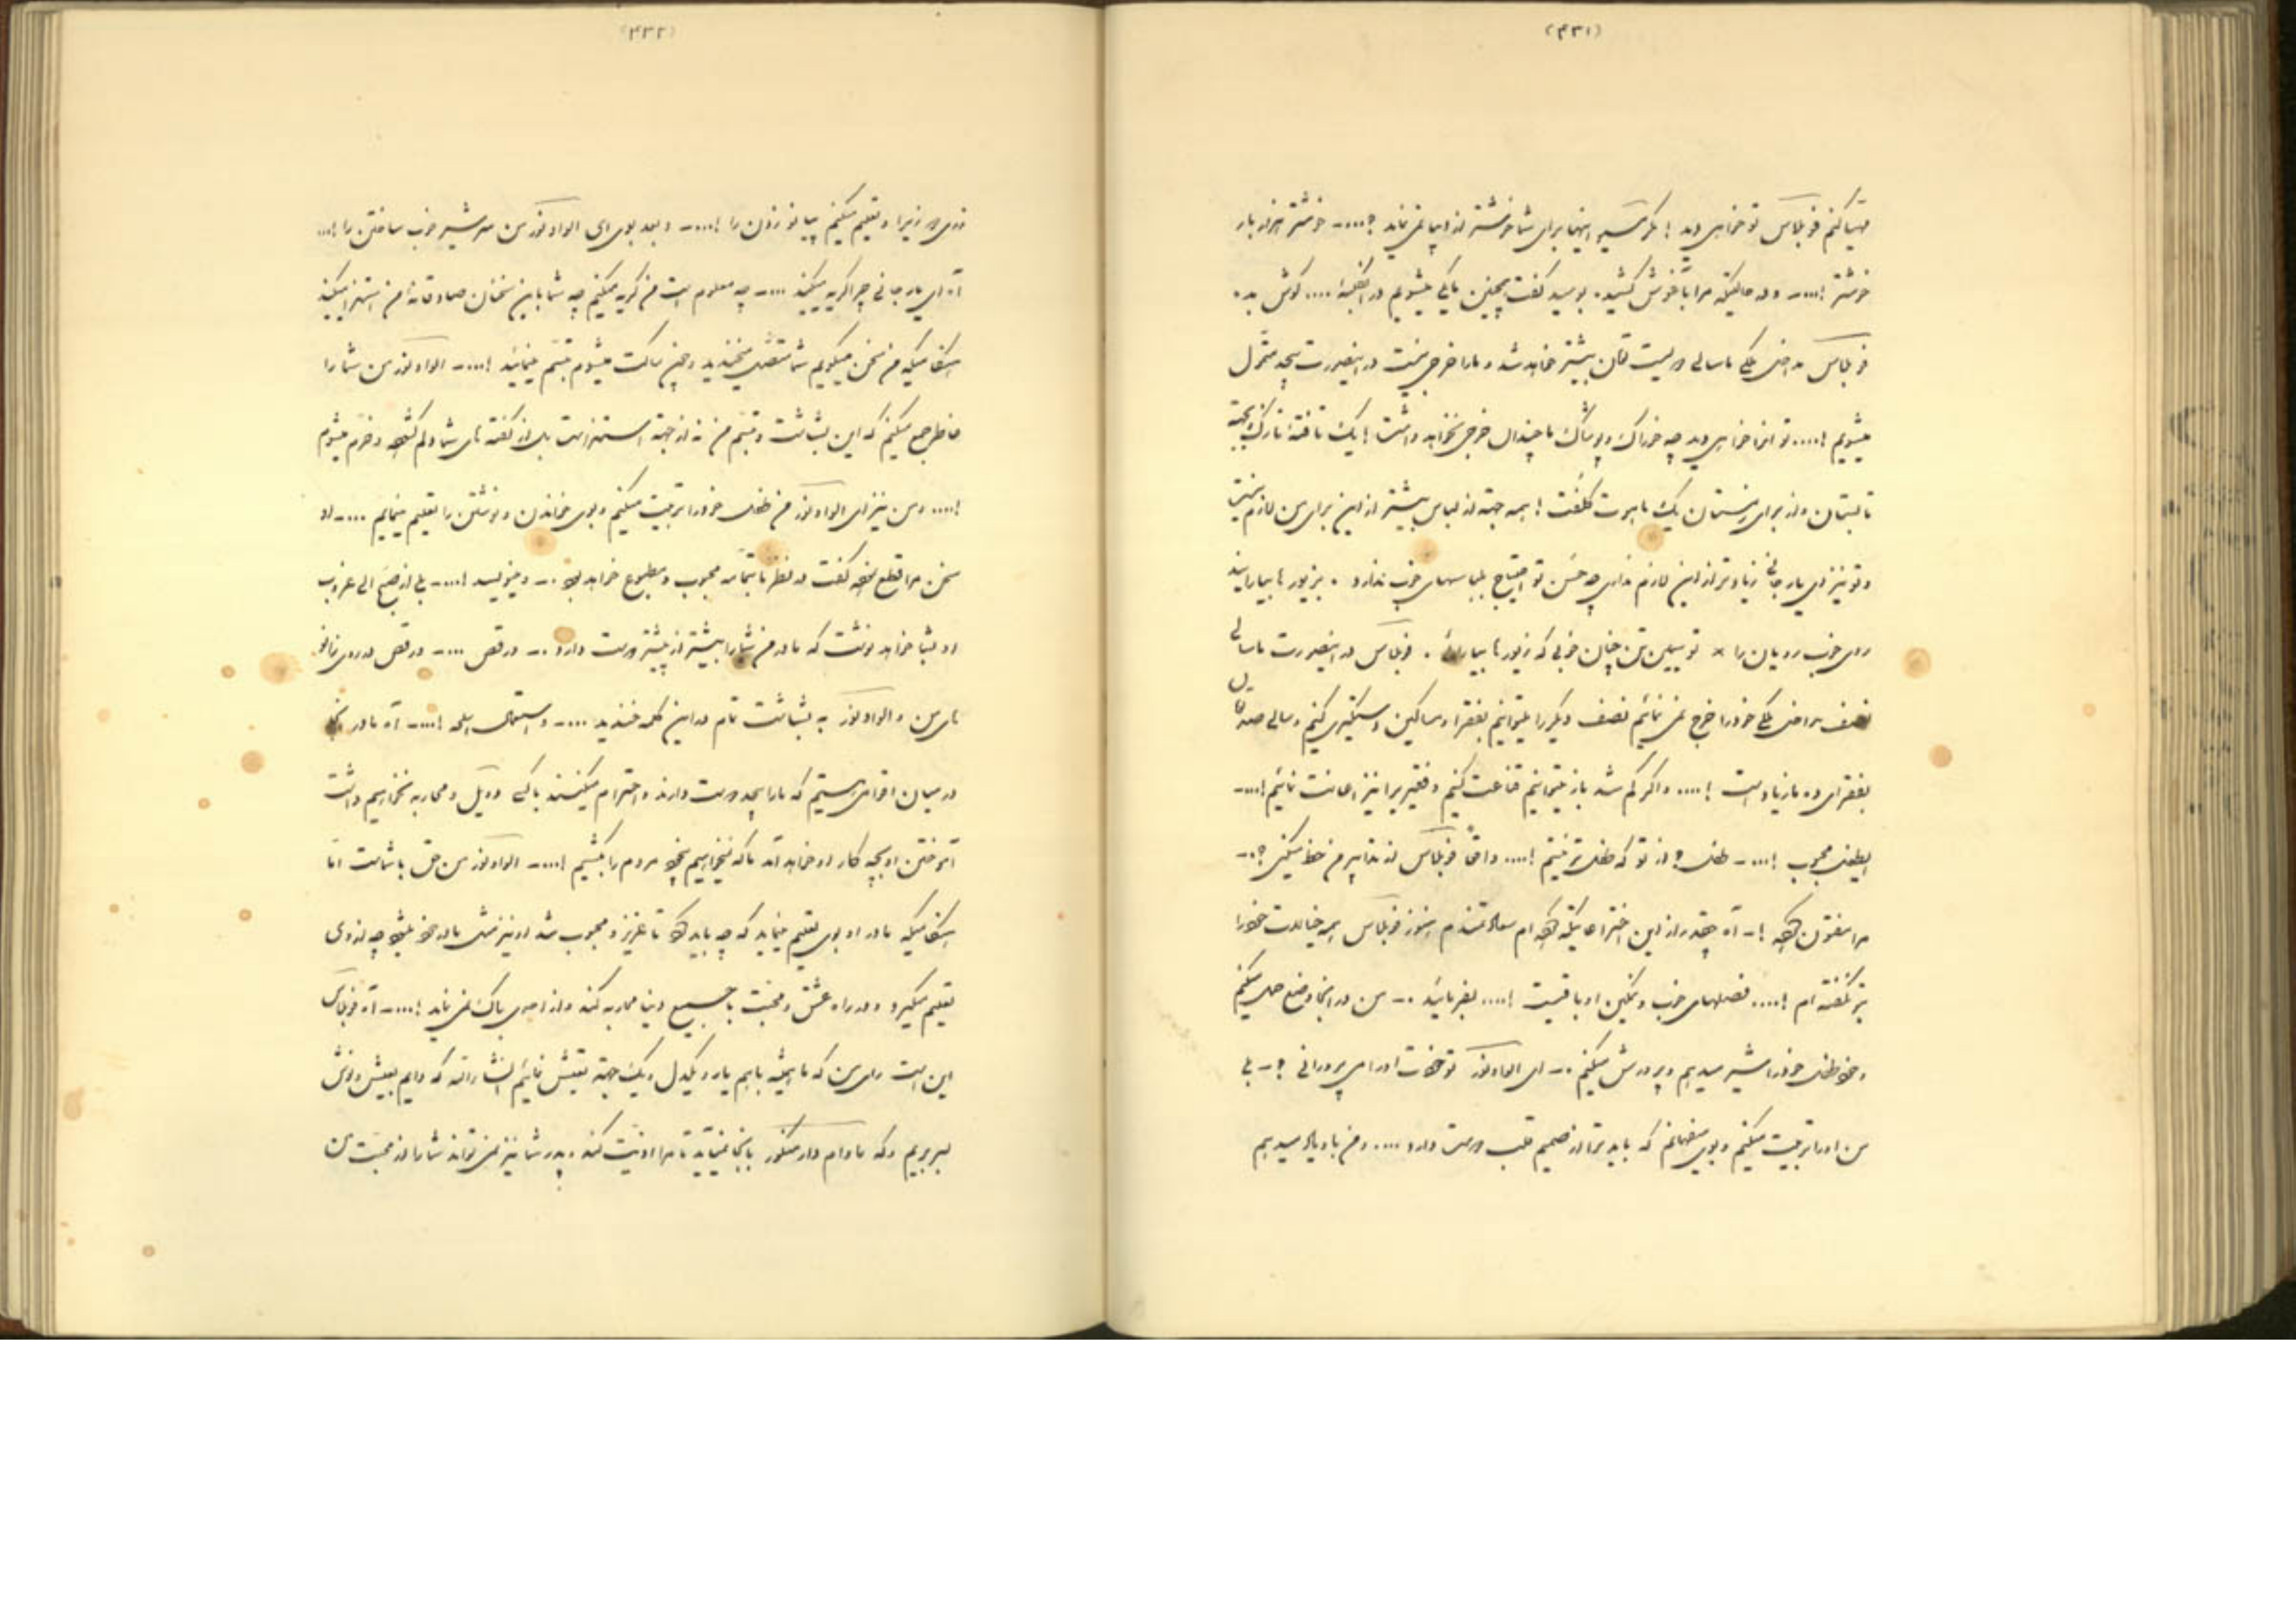 (۴۳۱)
مهیا کنم فوبلاس تو خواهی دید! مگر اینها برای شما خوشتر از دنیا نمی نماید ؟....- خوشتر هزار بار
خوشتر !....- و در حالتیکه مرا بآغوش کشیده بوسید گفت همچنین باکی میشویم در .... گوش بده
فوبلاس مداخل ملکی ما سالی دویست تومان بیشتر خواهد شد و ما را خرجی نیست در اینصورت بیحد متمول
میشویم !.... تو آنجا خواهی دید چه خوراک و پوشاک ما چندان خرجی نخواهد داشت ! یک تافته نازک بجهت
تابستان و از برای زمستان یک ماهوت کلفت ! بیشتر از این برای من لازم نیست
و تو نیز ای یار جانی زیادتر از این لازم نداری چه حسن تو احتیاج بلباسهای خوب ندارد . بزیورها بیارایند
روی خوب رویان را × تو سیمین تن چنان خوبی که زیورها بیارائی . فوبلاس در اینصورت ما سالی
نصف مداخل ملکی خود را خرج نمی نمائیم نصف دیگر را میتوانیم بفقرا و مساکین دستگیری کنیم و سالی صد تومان
بفقرای ده ما زیاد است !.... و اگر کم شد باز میتوانیم قناعت کنیم و فقیر را نیز اعانت نمائیم !....-
ایطفل محبوب !....- طفل ؟ از تو که طفل تر نیستم !.... واقعاً فوبلاس از تدابیر من حظ میکنی ؟.-
مرا مفتون کرده !- آه چقدر از این اختراعاتیکه کرده ام سعادتمندم هنوز فوبلاس همه خیالات خود را
بتو نگفته ام !.... فصلهای خوب و نمکین او باقیست !.... بفرمائید .- من در آنجا وضع حمل میکنم
و خود طفل خود را شیر میدهم و پرورش میکنم .- ای الواونور تو خودت او را می پرورانی ؟- بلی
من او را تربیت میکنم و بوی میفهمانم که باید ترا از صمیم قلب دوست دارد .... و من باو یاد میدهم
(۴۳۲)
زیرا و تعلیم میکنم پیانو زدن را !....- و بعد بوی ای الواونور من سرشیر خوب ساختن را !...
آه ای یار جانی چرا گریه میکنید ....- چه معلوم است من گریه میکنم چه شما باین سخنان صادقانه من استهزا میکنید
هنگامیکه من سخن میگویم شما متصل میخندید و چون ساکت میشوم تبسم مینمائید !....- الواونور من شما را
خاطر جمع میکنم که این بشاشت و تبسم من نه از جهة استهزاست بلکه از گفته های شما دلم گشوده و خرم میشوم
!.... و من نیز ای الواونور من طفل خود را تربیت میکنم و بوی خواندن و نوشتن را تعلیم مینمایم ....- او
سخن مرا قطع نموده گفت در نظر ما بتمامه محبوب و مطبوع خواهد بود .- و مینویسد !....- بلی از صبح الی غروب
او بشما خواهد نوشت که مادر من شما را بیشتر از پیشتر دوست دارد .- و رقص ....- و رقص در روی زانو
های من و الواونور به بشاشت تمام در این کلمه خندید ....- و استعمال اسلحه !....- آه مادر اینجا
در میان اقوامی هستیم که ما را بیحد دوست دارند و احترام میکنند باکسی دوئل و محاربه نخواهیم داشت
آموختن او بچه کار او خواهد آمد ما که نمیخواهیم بیخود مردم را بکشیم !....- الواونور من حق با شماست اما
هنگامیکه مادر او بوی تعلیم مینماید که چه باید کرد تا عزیز و محبوب شد او نیز مثل مادر خود میشود چه از وی
تعلیم میگیرد و در راه عشق و محبت با جمیع دنیا محاربه کند و از احدی باک نمی نماید !....- آه فوبلاس
این است رای من که ما همیشه باهم یار و یکدل و یک جهة تعیش نمائیم انشاءالله که دایم بعیش و نوش
بسر بریم و که مادام دارمنکور باینجا نمیآید تا مرا اذیت کند و پدر شما نیز نمی تواند شما را از محبت من